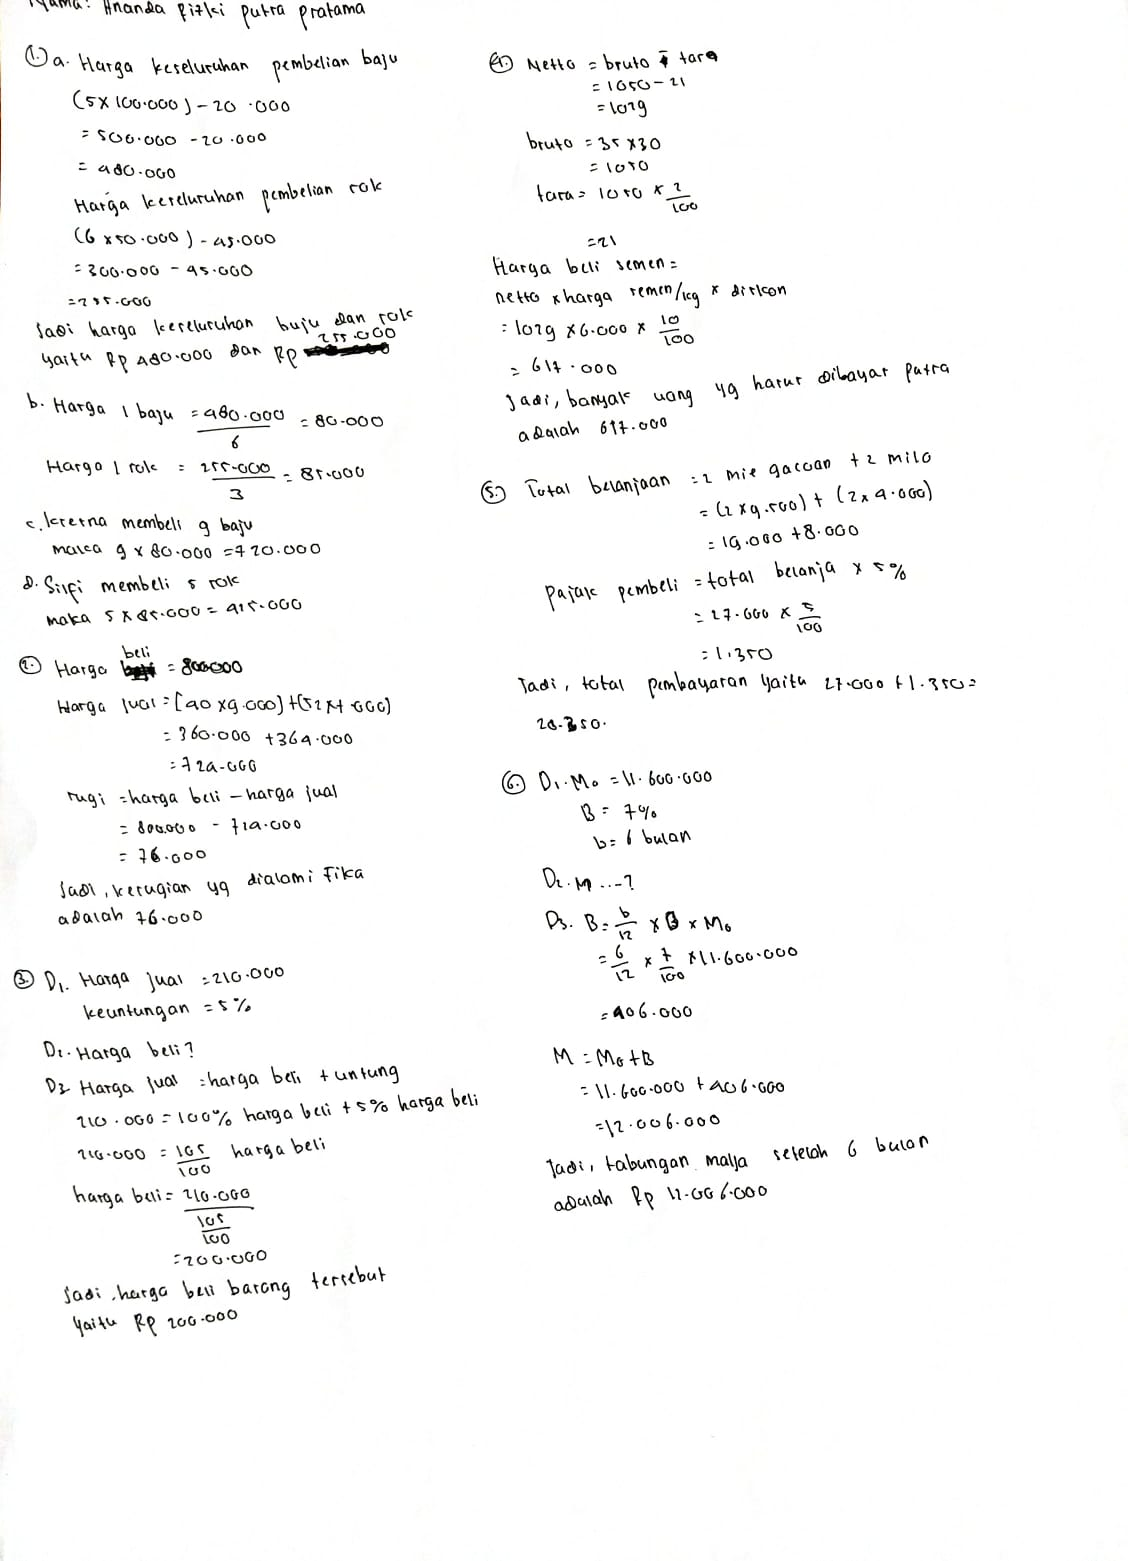 Nama: Ananda fizki putra pratama
1. a. Harga keseluruhan pembelian baju
(5 x 100.000) - 20.000
= 500.000 - 20.000
= 480.000
Harga keseluruhan pembelian rok
(6 x 50.000) - 45.000
= 300.000 - 45.000
= 255.000
Jadi harga keseluruhan baju dan rok
yaitu Rp 480.000 dan Rp 255.000
b. Harga 1 baju = 480.000 / 6 = 80.000
Harga 1 rok = 255.000 / 3 = 85.000
c. kerena membeli 9 baju
maka 9 x 80.000 = 720.000
d. Silfi membeli 5 rok
maka 5 x 85.000 = 415.000
2. Harga beli = 800000
Harga jual = [40 x 9.000] + (52 x 7.000)
= 360.000 + 364.000
= 724.000
rugi = harga beli - harga jual
= 800.000 - 714.000
= 76.000
Jadi, kerugian yg dialami Fika
adalah 76.000
3. D1. Harga jual = 210.000
keuntungan = 5%
D2. Harga beli?
D3 Harga jual = harga beli + untung
210.000 = 100% harga beli + 5% harga beli
210.000 = 105/100 harga beli
harga beli = 210.000 / 105/100
= 200.000
Jadi, harga beli barang tersebut
yaitu Rp 200.000
4. Netto = bruto - tara
= 1050 - 21
= 1029
bruto = 35 x 30
= 1050
tara = 1050 x 2/100
= 21
Harga beli semen =
netto x harga semen/kg x diskon
= 1029 x 6.000 x 10/100
= 617.000
Jadi, banyak uang yg harus dibayar putra
adalah 617.000
5. Total belanjaan = 2 mie gacoan + 2 milo
= (2 x 9.500) + (2 x 4.000)
= 19.000 + 8.000
Pajak pembeli = total belanja x 5%
= 27.000 x 5/100
= 1.350
Jadi, total pembayaran yaitu 27.000 + 1.350 =
28.350.
6. D1. Mo = 11.600.000
B = 7%
b = 6 bulan
D2. M ...?
D3. B = b/12 x B x Mo
= 6/12 x 7/100 x 11.600.000
= 406.000
M = Mo + B
= 11.600.000 + 406.000
= 12.006.000
Jadi, tabungan malja setelah 6 bulan
adalah Rp 12.006.000